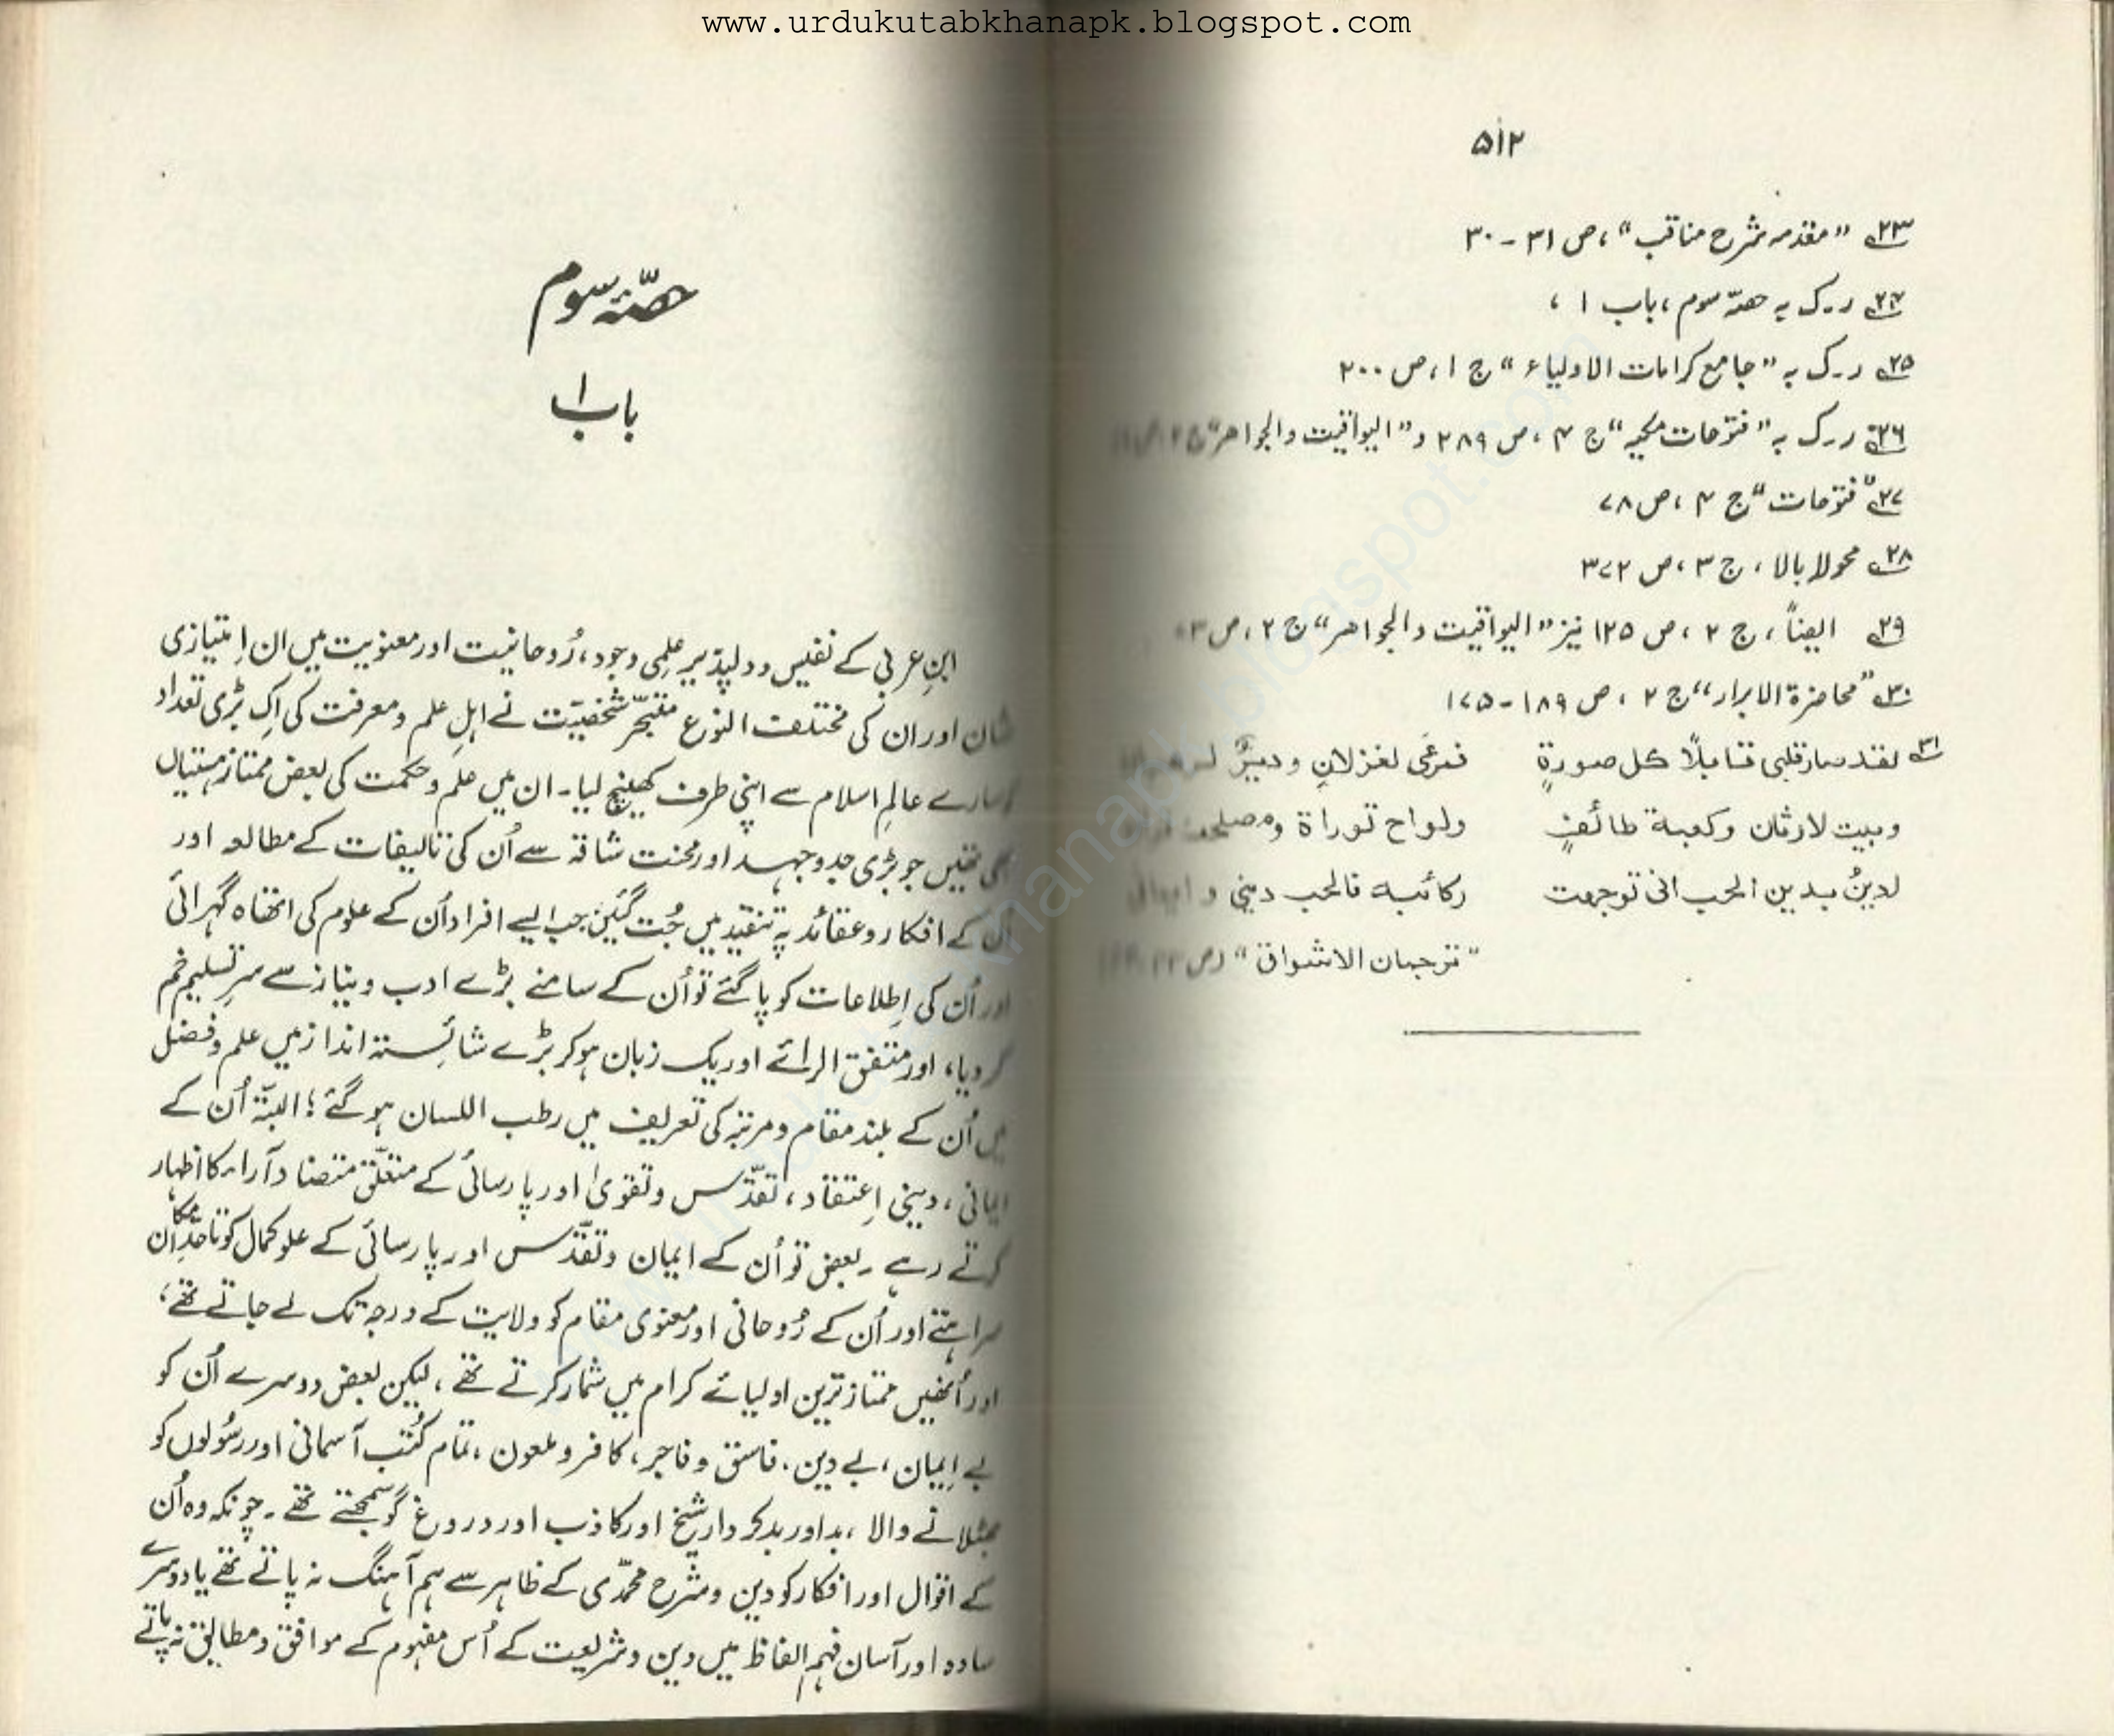 www.urdukutabkhanapk.blogspot.com
۵۱۲
۲۳ "مقدمہ شرح مناقب"، ص ۳۱ - ۳۰
۲۴ ر۔ک بہ حصہ سوم، باب ۱،
۲۵ ر۔ک بہ "جامع کرامات الاولیاء" ج ۱، ص ۲۰۰
۲۶ ر۔ک بہ "فتوحات مکیہ" ج ۴، ص ۲۸۹ و "الیواقیت والجواھر" ج ۲، ص
۲۷ "فتوحات" ج ۴، ص ۷۸
۲۸ محولا بالا، ج ۳، ص ۳۷۲
۲۹ ایضاً، ج ۲، ص ۱۲۵ نیز "الیواقیت والجواھر" ج ۲، ص ۳
۳۰ "محاضرۃ الابرار" ج ۲، ص ۱۸۹ - ۱۷۵
۳۱ لقد صار قلبی قابلًا کل صورۃٍ فمرعًی لغزلانٍ و دیرٌ
وبیت لاوثان وکعبۃ طائفٍ ولواح توراۃ ومصحف
لدینُ بدین الحب انی توجھت رکائبہ فالحب دینی و ایمانی
"ترجمان الاشواق" (ص
حصّۂ سوم
باب ۱
ابنِ عربی کے نفیس و دلپذیر علِمی وجود، رُوحانیت اور معنویت میں ان اِمتیازی
شان اور ان کی مختلف النوع متبحّر شخصیّت نے اہلِ علم و معرفت کی اِک بڑی تعداد
سارے عالمِ اسلام سے اپنی طرف کھینچ لیا۔ ان میں علم و حکمت کی بعض ممتاز ہستیاں
بھی تھیں جو بڑی جدوجہد اور محنت شاقہ سے اُن کی تالیفات کے مطالعہ اور
اُن کے افکار و عقائد پہ تنقید میں جُت گئیں جب ایسے افراد اُن کے علوم کی اتھاہ گہرائی
اور اُن کی اِطلاعات کو پا گئے تو اُن کے سامنے بڑے ادب و نیاز سے سرِتسلیم خم
کر دیا، اور متفق الرائے اور یک زبان ہو کر بڑے شائِستہ انداز میں علم و فضل
میں اُن کے بلند مقام و مرتبہ کی تعریف میں رطب اللسان ہو گئے؛ البتّہ اُن کے
ایمانی، دینی اِعتقاد، تقدّس و تقویٰ اور پارسائی کے متعلّق متضاد آراء کا اظہار
کرتے رہے۔ بعض تو اُن کے ایمان و تقدّس اور پارسائی کے علو کمال کو تا حدِّ امکان
سراہتے اور اُن کے رُوحانی اور معنوی مقام کو ولایت کے درجہ تک لے جاتے تھے،
اور اُنھیں ممتاز ترین اولیائے کرام میں شمار کرتے تھے، لیکن بعض دوسرے اُن کو
بے اِیمان، بے دین، فاسق و فاجر، کافر و ملعون، تمام کُتب آسمانی اور رسُولوں کو
جھٹلانے والا، بد اور بدکردار شیخ اور کاذب اور دروغ گو سمجھتے تھے۔ چونکہ وہ اُن
کے اقوال اور افکار کو دین و شرح محمّدی کے ظاہر سے ہم آہنگ نہ پاتے تھے یا دوسرے
سادہ اور آسان فہم الفاظ میں دین و شریعت کے اُس مفہوم کے موافق و مطابق نہ پاتے